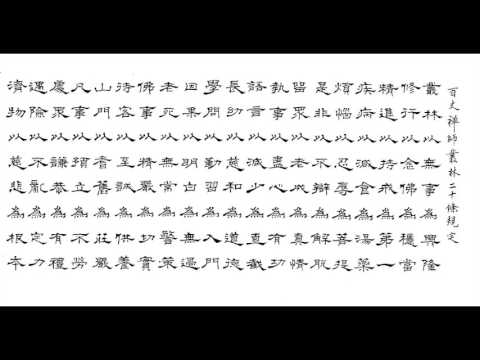 百丈禪師叢林二十條規定
叢林以無事為興隆
修行以念佛為穩當
精進以持戒為第一
疾病以減食為湯藥
煩惱以忍辱為菩提
是非以不辯為解脫
留眾以老成為真情
執事以盡心為有功
語言以減少為直截
長幼以慈和為道德
學問以勤習為入門
因果以明白為無過
老死以無常為警策
佛事以精嚴為功實
待客以至誠為供養
山門以耆舊為莊嚴
凡事以預立為不勞
處眾以謙恭為有禮
遇險以不亂為定力
濟物以慈悲為根本